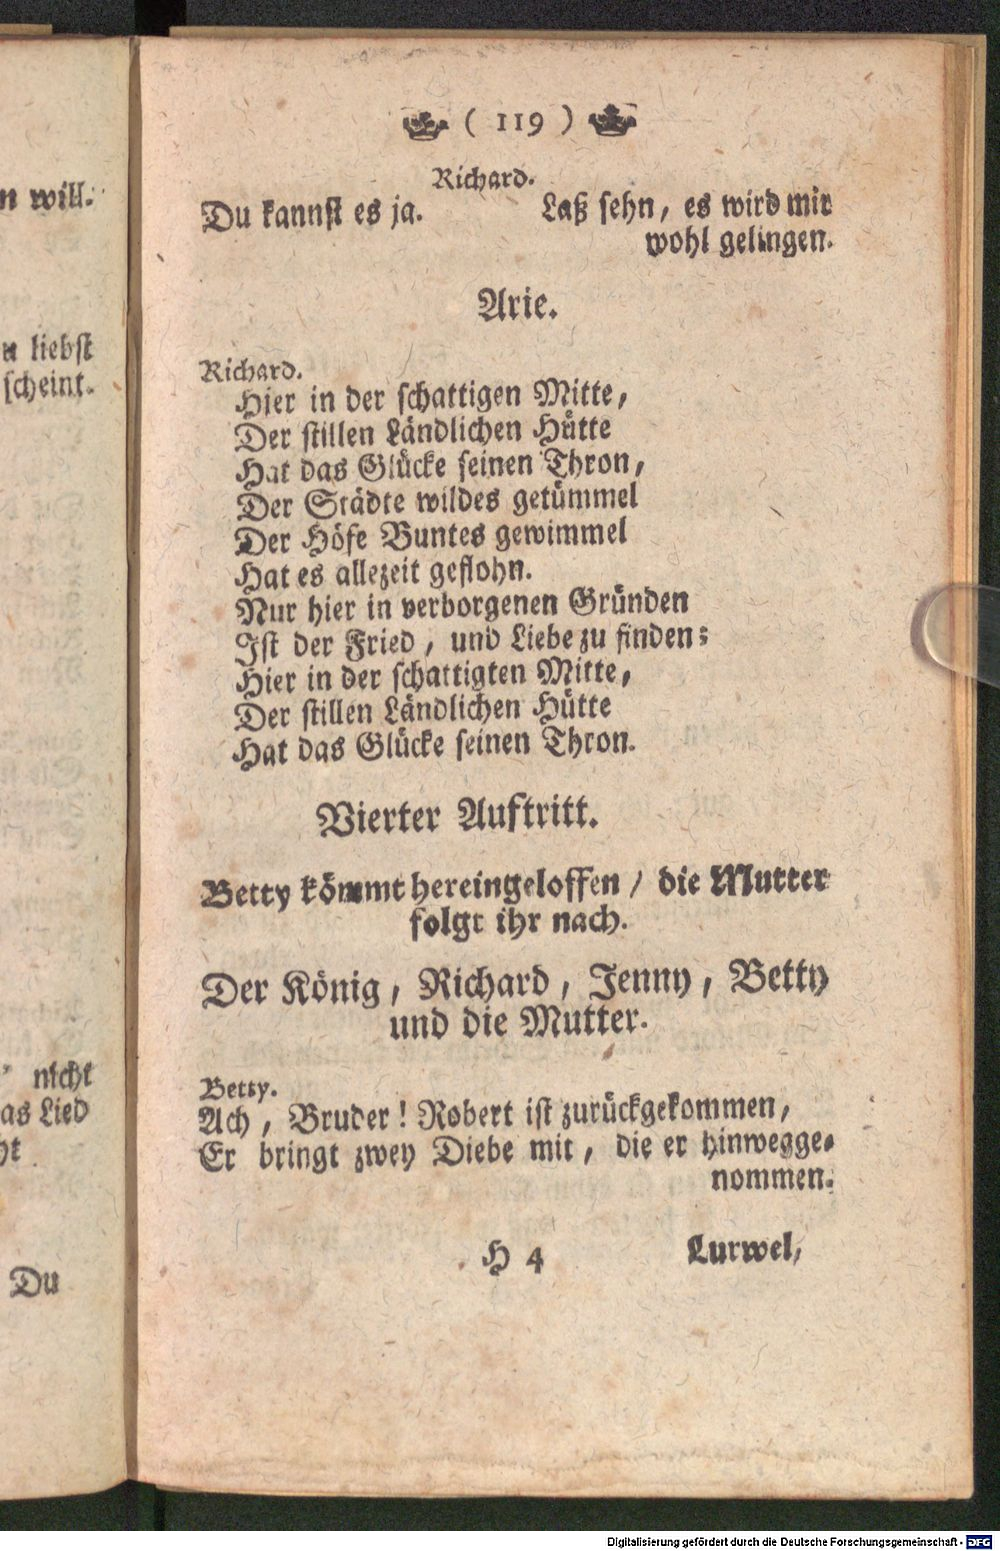 n will.
n liebst
scheint.
nicht
as Lied
ht
Du
( 119 )
Richard.
Du kannst es ja. Laß sehn, es wird mir
wohl gelingen.
Arie.
Richard.
Hier in der schattigen Mitte,
Der stillen Ländlichen Hütte
Hat das Glücke seinen Thron,
Der Städte wildes getümmel
Der Höfe Buntes gewimmel
Hat es allezeit geflohn.
Nur hier in verborgenen Gründen
Ist der Fried, und Liebe zu finden;
Hier in der schattigten Mitte,
Der stillen Ländlichen Hütte
Hat das Glücke seinen Thron.
Vierter Auftritt.
Betty kömmt hereingeloffen / die Mutter
folgt ihr nach.
Der König, Richard, Jenny, Betty
und die Mutter.
Betty.
Ach, Bruder! Robert ist zurückgekommen,
Er bringt zwey Diebe mit, die er hinwegge-
nommen.
H 4 Lurwel,
Digitalisierung gefördert durch die Deutsche Forschungsgemeinschaft - DFG